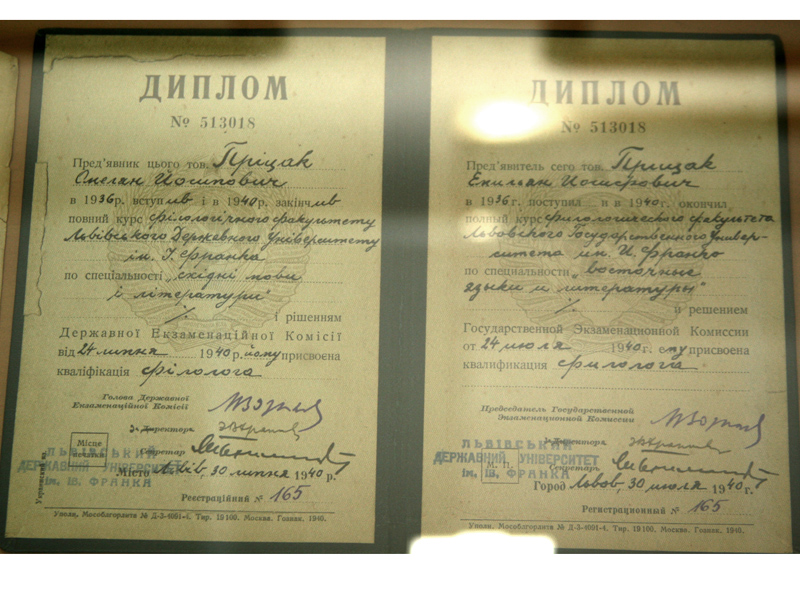 ДИПЛОМ
№ 513018
Пред'явник цього тов. Пріцак
Омелян Йосипович
в 1936р. вступив і в 1940р. закінчив
повний курс філологічного факультету
Львівського Державного Університету
ім. І. Франка
по спеціальності „східні мови
і літератури"
і рішенням
Державної Екзаменаційної Комісії
від 24 липня 1940р. йому присвоєна
кваліфікація філолога
Голова Державної
Екзаменаційної Комісії
Директор
Місце
печатки
Секретар
ЛЬВІВСЬКИЙ
ДЕРЖАВНИЙ УНІВЕРСИТЕТ
ім. ІВ. ФРАНКА
Місто Львів, 30 липня 1940 р.
Реєстраційний № 165
Украинский яз.
Уполн. Мособлгорлита № Д-3-4091-4. Тир. 19100. Москва. Гознак. 1940.
ДИПЛОМ
№ 513018
Пред'явитель сего тов. Прицак
Емильян Иосифович
в 1936г. поступил и в 1940г. окончил
полный курс филологического факультета
Львовского Государственного Универ-
ситета им. И. Франко
по специальности „восточные
языки и литературы"
и решением
Государственной Экзаменационной Комиссии
от 24 июля 1940г. ему присвоена
квалификация филолога
Председатель Государственной
Экзаменационной Комиссии
Директор
М. П.
Секретарь
ЛЬВІВСЬКИЙ
ДЕРЖАВНИЙ УНІВЕРСИТЕТ
ім. ІВ. ФРАНКА
Город Львов, 30 июля 1940г.
Регистрационный № 165
Уполн. Мособлгорлита № Д-3-4091-4. Тир. 19100. Москва. Гознак. 1940.